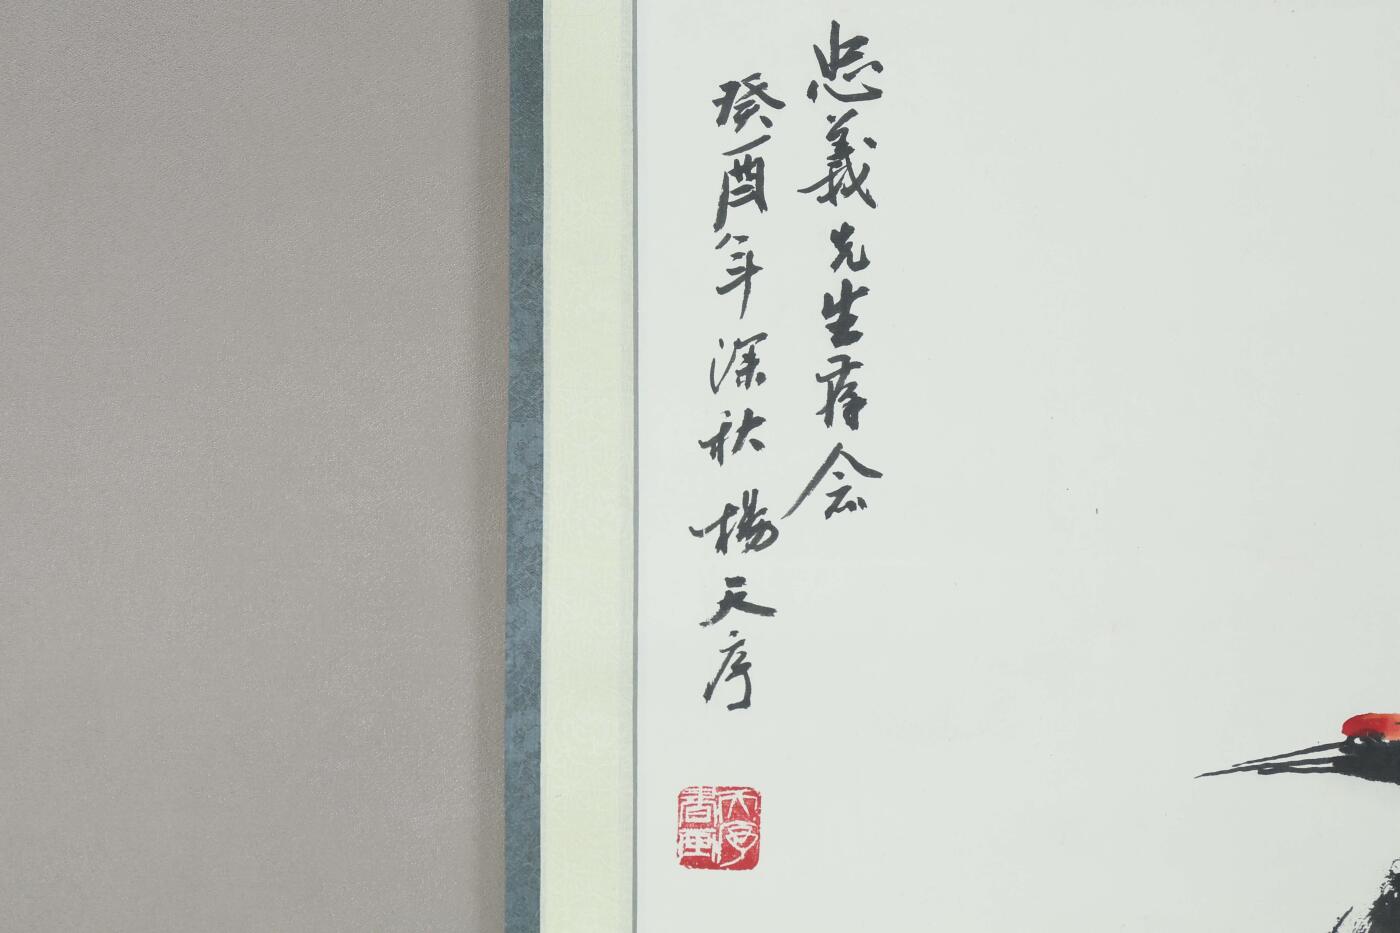 忠義先生存念
癸酉年深秋 楊天序
天序書画